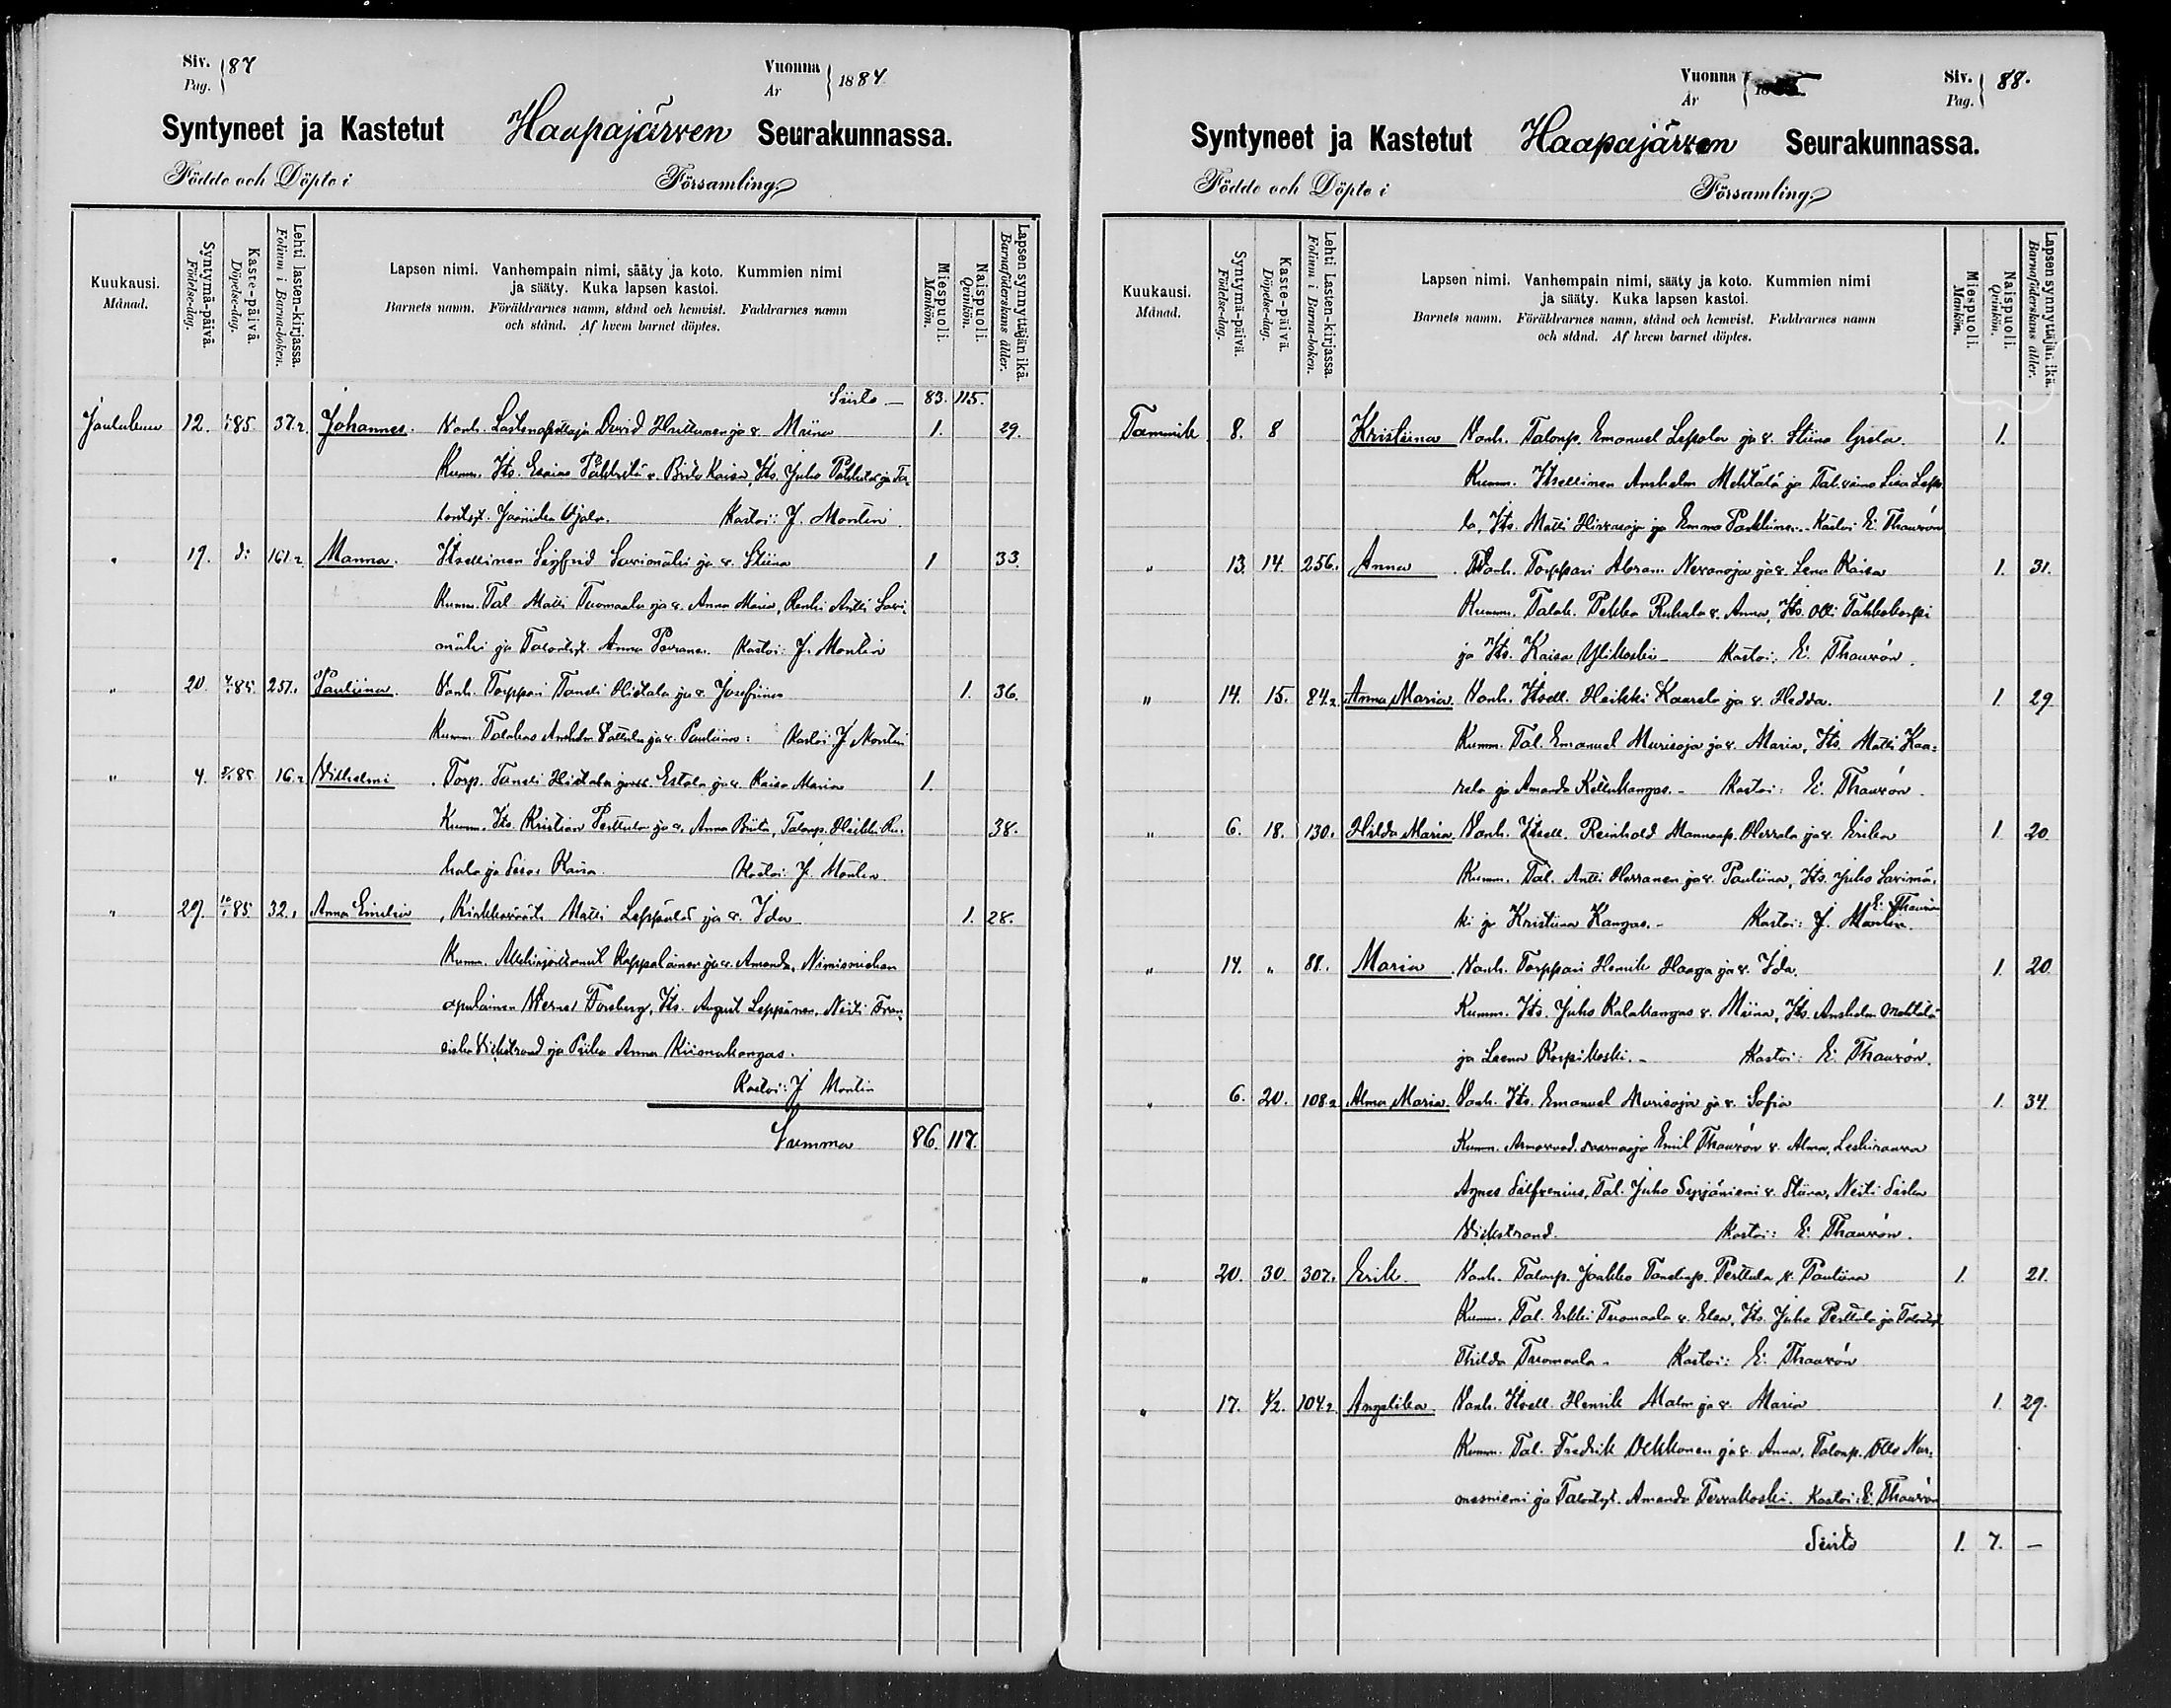 Siv. Pag. 87
Vuonna År 1884
Syntyneet ja Kastetut Haapajärven Seurakunnassa.
Födde och Döpte i Församling.
Kuukausi. Månad.
Syntymä-päivä. Födelse-dag.
Kaste-päivä. Döpelse-dag.
Lehti lasten-kirjassa. Folium i Barna-boken.
Lapsen nimi. Vanhempain nimi, sääty ja koto. Kummien nimi
ja sääty. Kuka lapsen kastoi.
Barnets namn. Föräldrarnes namn, stånd och hemvist. Faddrarnes namn
och stånd. Af hvem barnet döptes.
Miespuoli. Mankön.
Naispuoli. Qvinkön.
Lapsen synnyttäjän ikä. Barnaföderskans ålder.
Siirto — 83. 115.
Joulukuu 12. 85 37.2 Johannes. Vanh. David Huttunen ja v. Miina 1. 29.
Kumm. Its. Esaias v. Brita Kaisa, Its. Juho ja Ta-
Kastoi: J. Montin
" 17. d:o 161.2 Manna. Itsellinen Sigfrid Savimäki ja v. Stiina 1 33.
Kumm. Tal. Matti Tuomaala ja v. Anna Maria, Renki Antti Savi-
mäki ja Anna Kastoi: J. Montin
" 20. 85 251.1 Pauliina. Vanh. Torppari Taneli ja v. Josefiina 1. 36.
Kumm. ja v. Pauliina: Kastoi J. Montin
" 4. 85 16.2 Vilhelmi. Torp. Taneli ja v. Kaisa Maria 1.
Kumm. Its. Kristian Perttula ja v. Anna Brita, Talonp. Heikki Ru- 38.
hala ja Kaisa Kastoi: J. Montin
" 29. 10/1 85 32.1 Anna Emelia. Matti Leppälä ja v. Ida 1. 28.
Kumm. ja v. Amanda, Nimismiehen
apulainen Werner Forsberg, Its. August Leppänen, Neiti Fran-
siska Vickstrand ja Piika Anna Kiisnakangas.
Kastoi: J Montin
Summa 86. 117.
Vuonna År 18
Siv. Pag. 88.
Syntyneet ja Kastetut Haapajärven Seurakunnassa.
Födde och Döpte i Församling.
Kuukausi. Månad.
Syntymä-päivä. Födelse-dag.
Kaste-päivä. Döpelse-dag.
Lehti Lasten-kirjassa. Folium i Barna-boken.
Lapsen nimi. Vanhempain nimi, sääty ja koto. Kummien nimi
ja sääty. Kuka lapsen kastoi.
Barnets namn. Föräldrarnes namn, stånd och hemvist. Faddrarnes namn
och stånd. Af hvem barnet döptes.
Miespuoli. Mankön.
Naispuoli. Qvinkön.
Lapsen synnyttäjän ikä. Barnaföderskans ålder.
Tammik. 8. 8 Kristiina Vanh. Talonp. Emanuel Lepola ja v. Stiina Greta. 1.
Kumm. Itsellinen Anshelm Mehtälä ja Liisa Lepo-
la, Its. Matti Hirvasoja ja Emma Kastoi E. Thauvón
" 13. 14. 256.1 Anna Vanh. Torppari Abram Nevanoja ja v. Lena Kaisa 1. 31.
Kumm. Talok. Pekka Ruhala v. Anna, Its. Olli
ja Its. Kaisa Ylikoski – Kastoi: E. Thauvón.
" 14. 15. 84.2 Anna Maria. Vanh. Itsell. Heikki Kaarela ja v. Hedda. 1 29
Kumm. Tal. Emanuel Murisoja ja v. Maria, Its. Matti Kaa-
rela ja Amanda Kellukangas. – Kastoi: E. Thauvón.
" 6. 18. 130.1 Hilda Maria. Vanh. Itsell. Reinhold Herrala ja v. Erika 1 20
Kumm. Tal. Antti Harranen ja v. Pauliina, Its. Juho Savimä-
ki ja Kristiina Kangas. – Kastoi: J. Montin. E. Thauvón
" 14. " 88.1 Maria Vanh. Torppari Henrik Haaga ja v. Ida. 1. 20
Kumm. Its. Juho Kalakangas v. Miina, Its. Anshelm Mehtälä
ja Leena Korpikoski. – Kastoi: E. Thauvón.
" 6. 20. 108.2 Alma Maria. Vanh. Its. Emanuel Murisoja ja v. Sofia 1. 34.
Kumm. Armovuod. saarnaaja Emil Thauvón v. Alma, Leskirouva
Agnes Salfvenius, Tal. Juho v. Stiina, Neiti
Vickstrand. Kastoi: E. Thauvón.
" 20. 30. 307.1 Erik. Vanh. Talonp. Jaakko Perttula v. Pauliina 1. 21.
Kumm. Tal. Erkki Tuomaala v. Elsa, Its. Juho Perttula ja
Thilda Tuomaala. Kastoi: E. Thauvón
" 17. 1/2. 104.2 Angelika. Vanh. Itsell. Henrik Malm ja v. Maria 1 29.
Kumm. Tal. Fredrik Okkonen ja v. Anna, Talonp. Olli Nur-
mesniemi ja Amanda Tervakoski. Kastoi: E. Thauvón
Siirto 1. 7. –